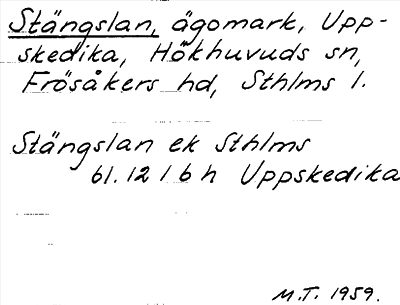 Stängslan, ägomark, Upp-
skedika, Hökhuvuds sn,
Frösåkers hd, Sthlms l.
Stängslan ek Sthlms
61.12 l 6 h Uppskedika
M.T. 1959.